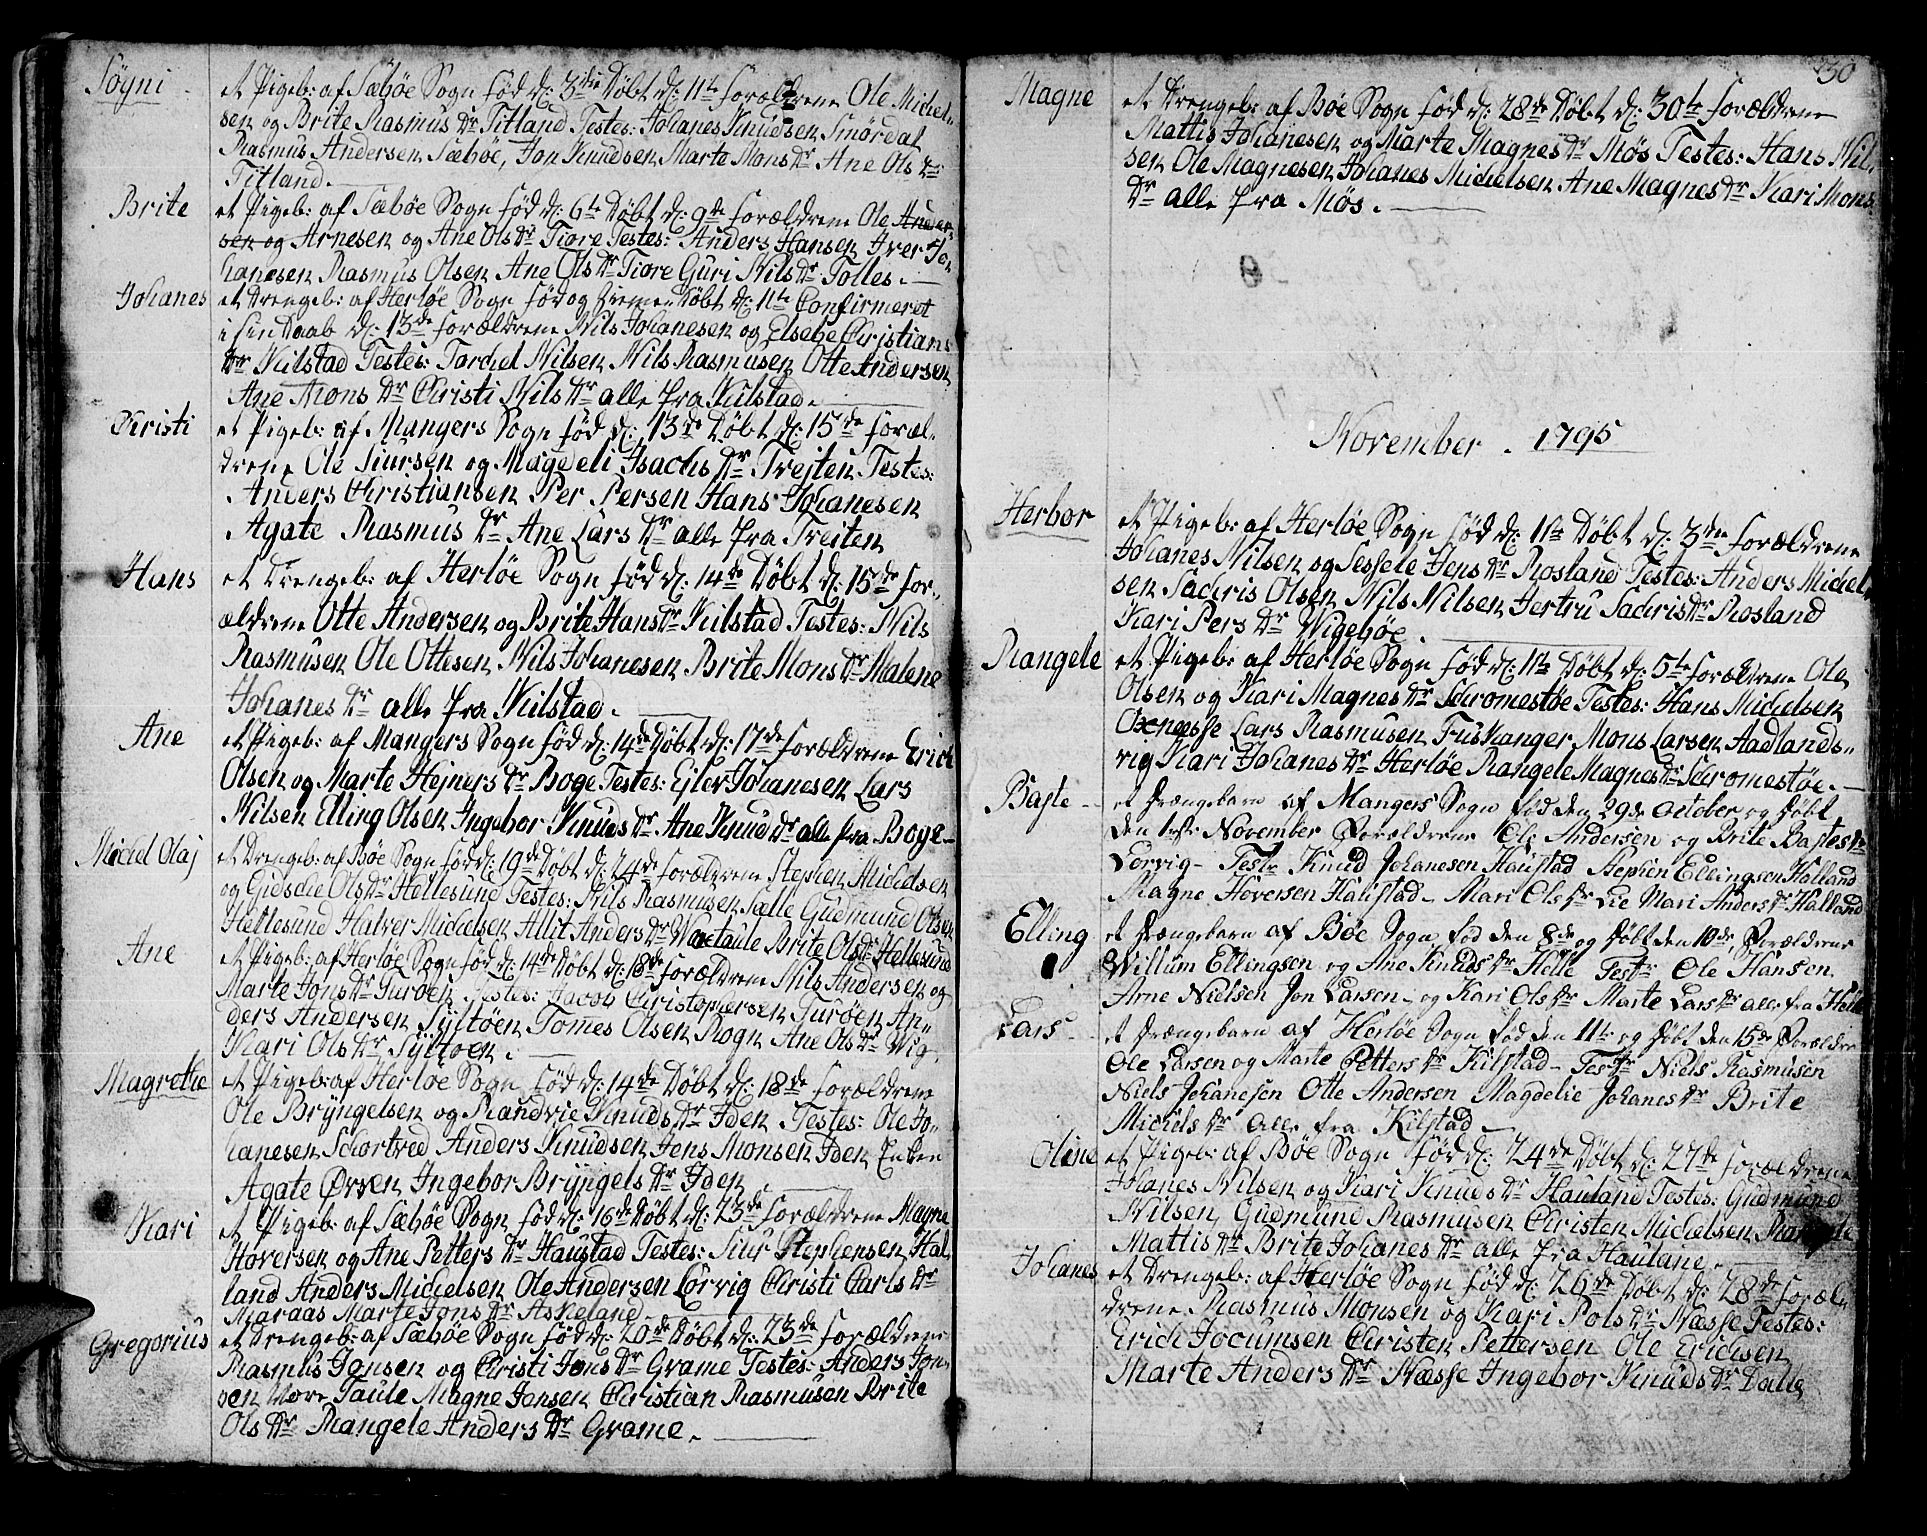 Søgni - et Pigeb: af Sæbøe Sogn fød d: 3die Døbt d: 11te forældrene Ole Michel-
sen og Brite Rasmus Dr Titland Testes: Johanes Knudsen Smørdal
Rasmus Andersen Sæbøe, Jon Knudsen Marte Mons Dr Ane Ols Dr
Titland.
Brite et Pigeb: af Sæbøe Sogn fød d: 6te Døbt d: 9de forældrene Ole Ander-
sen og Arnesen og Ane Ols Dr Fiore Testes: Anders Hansen Iver Jo-
hanesen Rasmus Olsen Ane Ols Dr Fiore Guri Nils Dr Tolles.
Johanes et Drengeb: af Herløe Sogn fød og Døbt d: 11te Confirmeret
i sin Daab d: 13de forældrene Nils Johanesen og Elsebe Christians
Dr Kilstad Testes: Torchel Nilsen Nils Rasmusen Otte Andersen
Ane Mons Dr Christi Nils Dr alle fra Kilstad.
Christi et Pigeb: af Mangers Sogn fød d: 13de Døbt d: 15de foræl-
drene Ole Siursen og Magdeli Isachs Dr Trejten Testes:
Anders Christiansen Per Persen Hans Johanesen
Agate Rasmus Dr Ane Lars Dr alle fra Treiten
Hans et Drengeb: af Herløe Sogn fød d: 14de Døbt d: 15de for-
ældrene Otte Andersen og Brite Hans Dr Kilstad Testes: Nils
Rasmusen Ole Ottesen Nils Johanesen Brite Mons Dr Malene
Johanes Dr alle fra Kilstad.
Ane et Pigeb: af Mangers Sogn fød d: 14de Døbt d: 17de forældrene Erich
Olsen og Marte Hejners Dr Boge Testes: Eilev Johanesen Lars
Nilsen Elling Olsen Ingebor Knuds Dr Ane Knud Dr alle fra Boge-
Michel Olaj et Drengeb: af Bøe Sogn fød d: 19de Døbt d: 24de forældrene Stephen Michelsen
og Gidschie Ols Dr Hellesund Testes: Nils Rasmusen Sælle Gudmund Olsen
Hellesund Halver Michelsen Allit Anders Dr Brite Ols Dr Hellesund
Ane et Pigeb: af Herløe Sogn fød d: 14de Døbt d: 18de forældrene Nils Andersen og
Marte Jons Dr Turøen Testes: Jacob Christophersen Turøen An-
ders Andersen Syltøen Tomes Olsen Rogn Ane Ols Dr Wig
Kari Ols Dr Syltøen.
Magrethe et Pigeb: af Herløe Sogn fød d: 14de Døbt d: 18de forældrene
Ole Bryngelsen og Randvie Knuds Dr Iden Testes: Ole Jo-
hanesen Schortved Anders Knudsen Jens Monsen Iden Enken
Agate Ørsen Ingebor Bryngels Dr Iden
Kari et Pigeb: af Sæbøe Sogn fød d: 16de Døbt d: 23de forældrene Magne
Hoversen og Ane Petters Dr Haustad Testes: Siur Stephensen Hal-
land Anders Michelsen Ole Andersen Lørvig Christi Carls Dr
Maraas Marte Jons Dr Askeland
Gregorius et Drengeb: af Sæbøe Sogn fød d: 20de Døbt d: 23de forældrene
Rasmus Jonsen og Christi Jons Dr Grame Testes: Anders Jon-
sen Taule Magne Jensen Christian Rasmusen Brite
Ols Dr Rangele Anders Dr Grame.
30
Magne et Drengeb: af Bøe Sogn fød d: 28de Døbt d: 30te forældrene
Mattis Johanesen og Marte Magnes Dr Møs Testes: Hans Nil-
sen Ole Magnesen Johanes Michelsen Ane Magnes Dr Kari Mons
Dr alle fra Møs.
November. 1795
Herbor et Pigeb: af Herløe Sogn fød d: 1ste Døbt d: 3die forældrene
Johanes Nilsen og Sessele Jens Dr Rosland Testes: Anders Michel-
sen Sachris Olsen Nils Nilsen Jertru Sachris Dr Rosland
Kari Pers Dr Wigebøe.
Rangele et Pigeb: af Herløe Sogn fød d: 1ste Døbt d: 5te forældrene Ole
Olsen og Kari Magnes Dr Schromestøe Testes: Hans Michelsen
Oxnesse Lars Rasmusen Fuskanger Mons Larsen Aadlands-
vig Kari Johanes Dr Herløe Rangele Magnes Dr Schromestøe.
Baste - et Drængebarn af Mangers Sogn fød den 29de October og Døbt
den 1ste November Forældrene Ole Andersen og Brite Bastes Dr
Lørvig - Testr Knud Johanesen Haustad Stephen Ellingsen Halland
Magne Hoversen Haustad - Mari Ols Dr Lie Mari Anders Dr Halland
Elling et Drængebarn af Bøe Sogn fød den 8de og Døbt den 10de Forældrene
Willum Ellingsen og Ane Knuds Dr Helle Testr Ole Hansen
Arne Nielsen Jon Larsen - og Kari Ols Dr Marte Lars Dr alle fra Helle
Lars - et Drængebarn af Herløe Sogn fød den 11te og Døbt den 15de Forældre
Ole Larsen og Marte Petters Dr Kilstad - Testr Niels Rasmusen
Niels Johanesen Otte Andersen Magdelie Johanes Dr Brite
Michels Dr alle fra Kilstad -
Oline et Pigeb: af Bøe Sogn fød d: 24de Døbt d: 27de forældrene
Johanes Nilsen og Kari Knuds Dr Hauland Testes: Gudmund
Nilsen Gudmund Rasmusen Christen Michelsen
Mattis Dr Brite Johanes Dr alle fra Haulane.
Johanes et Drengeb: af Herløe Sogn fød d: 26de Døbt d: 28de foræl-
drene Rasmus Monsen og Kari Pols Dr Næsse Testes:
Erich Jocumsen Christen Pettersen Ole Erichsen
Marte Anders Dr Næsse Ingebor Knuds Dr Dalle